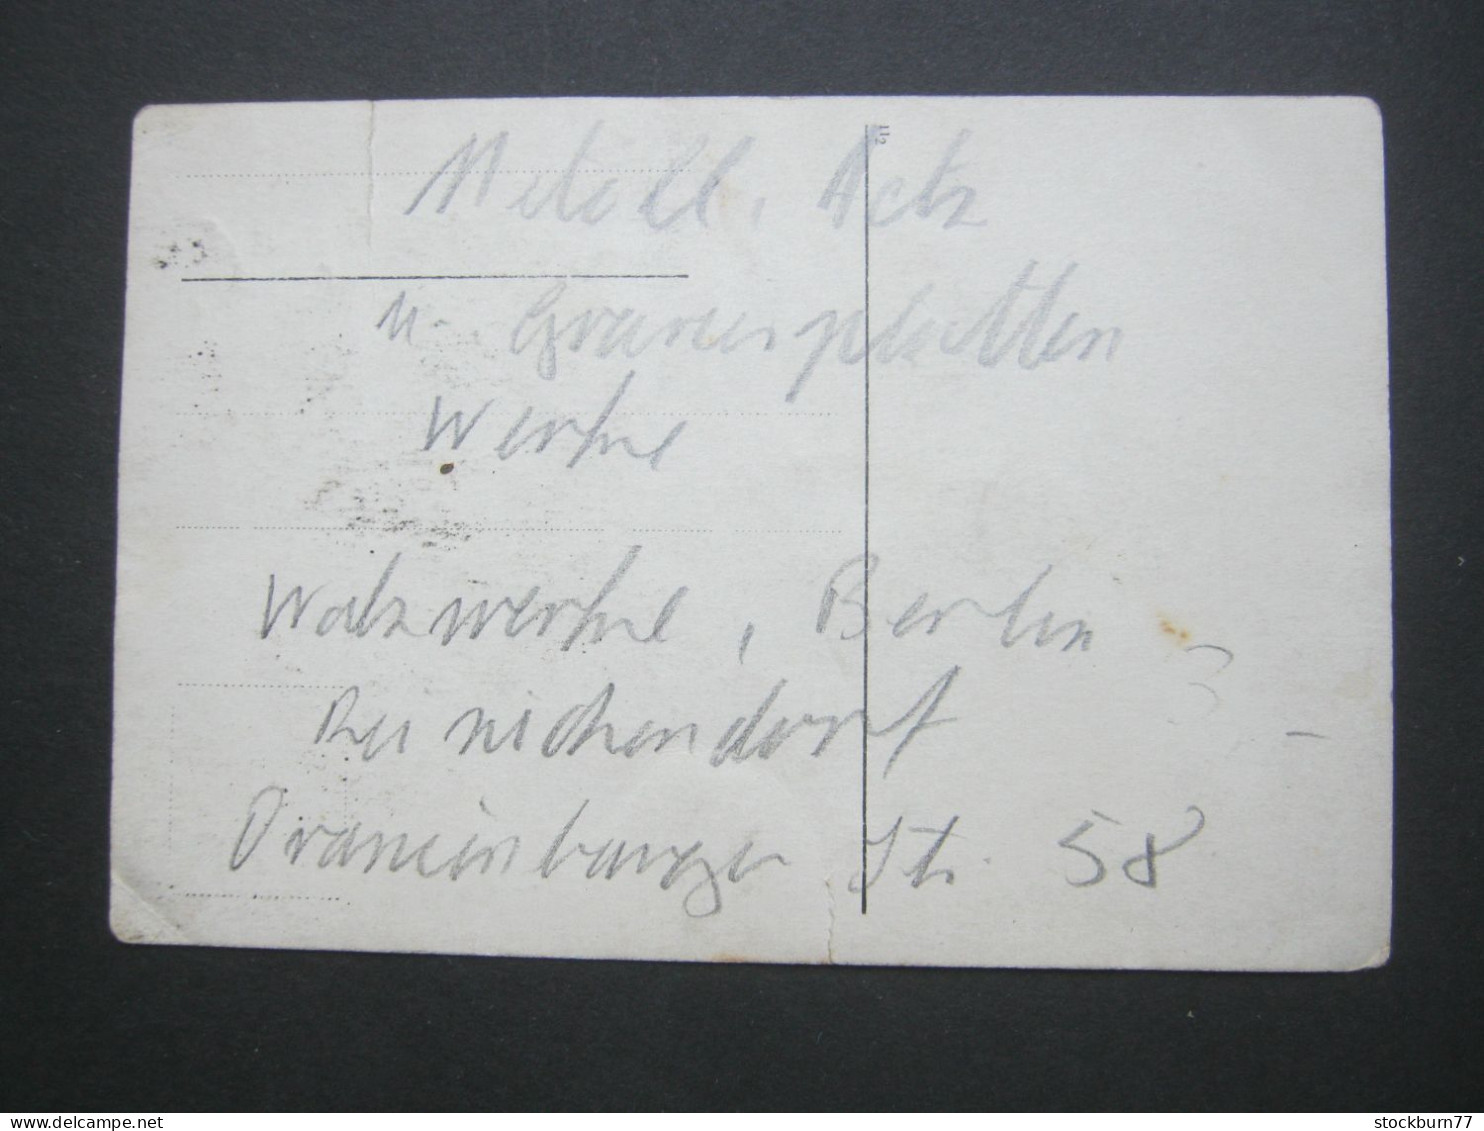 Metall, Aetz
u. Gravierplatten
Werke
Walzwerke, Berlin
Reinickendorf
Oranienburger Str. 58
stockburn77